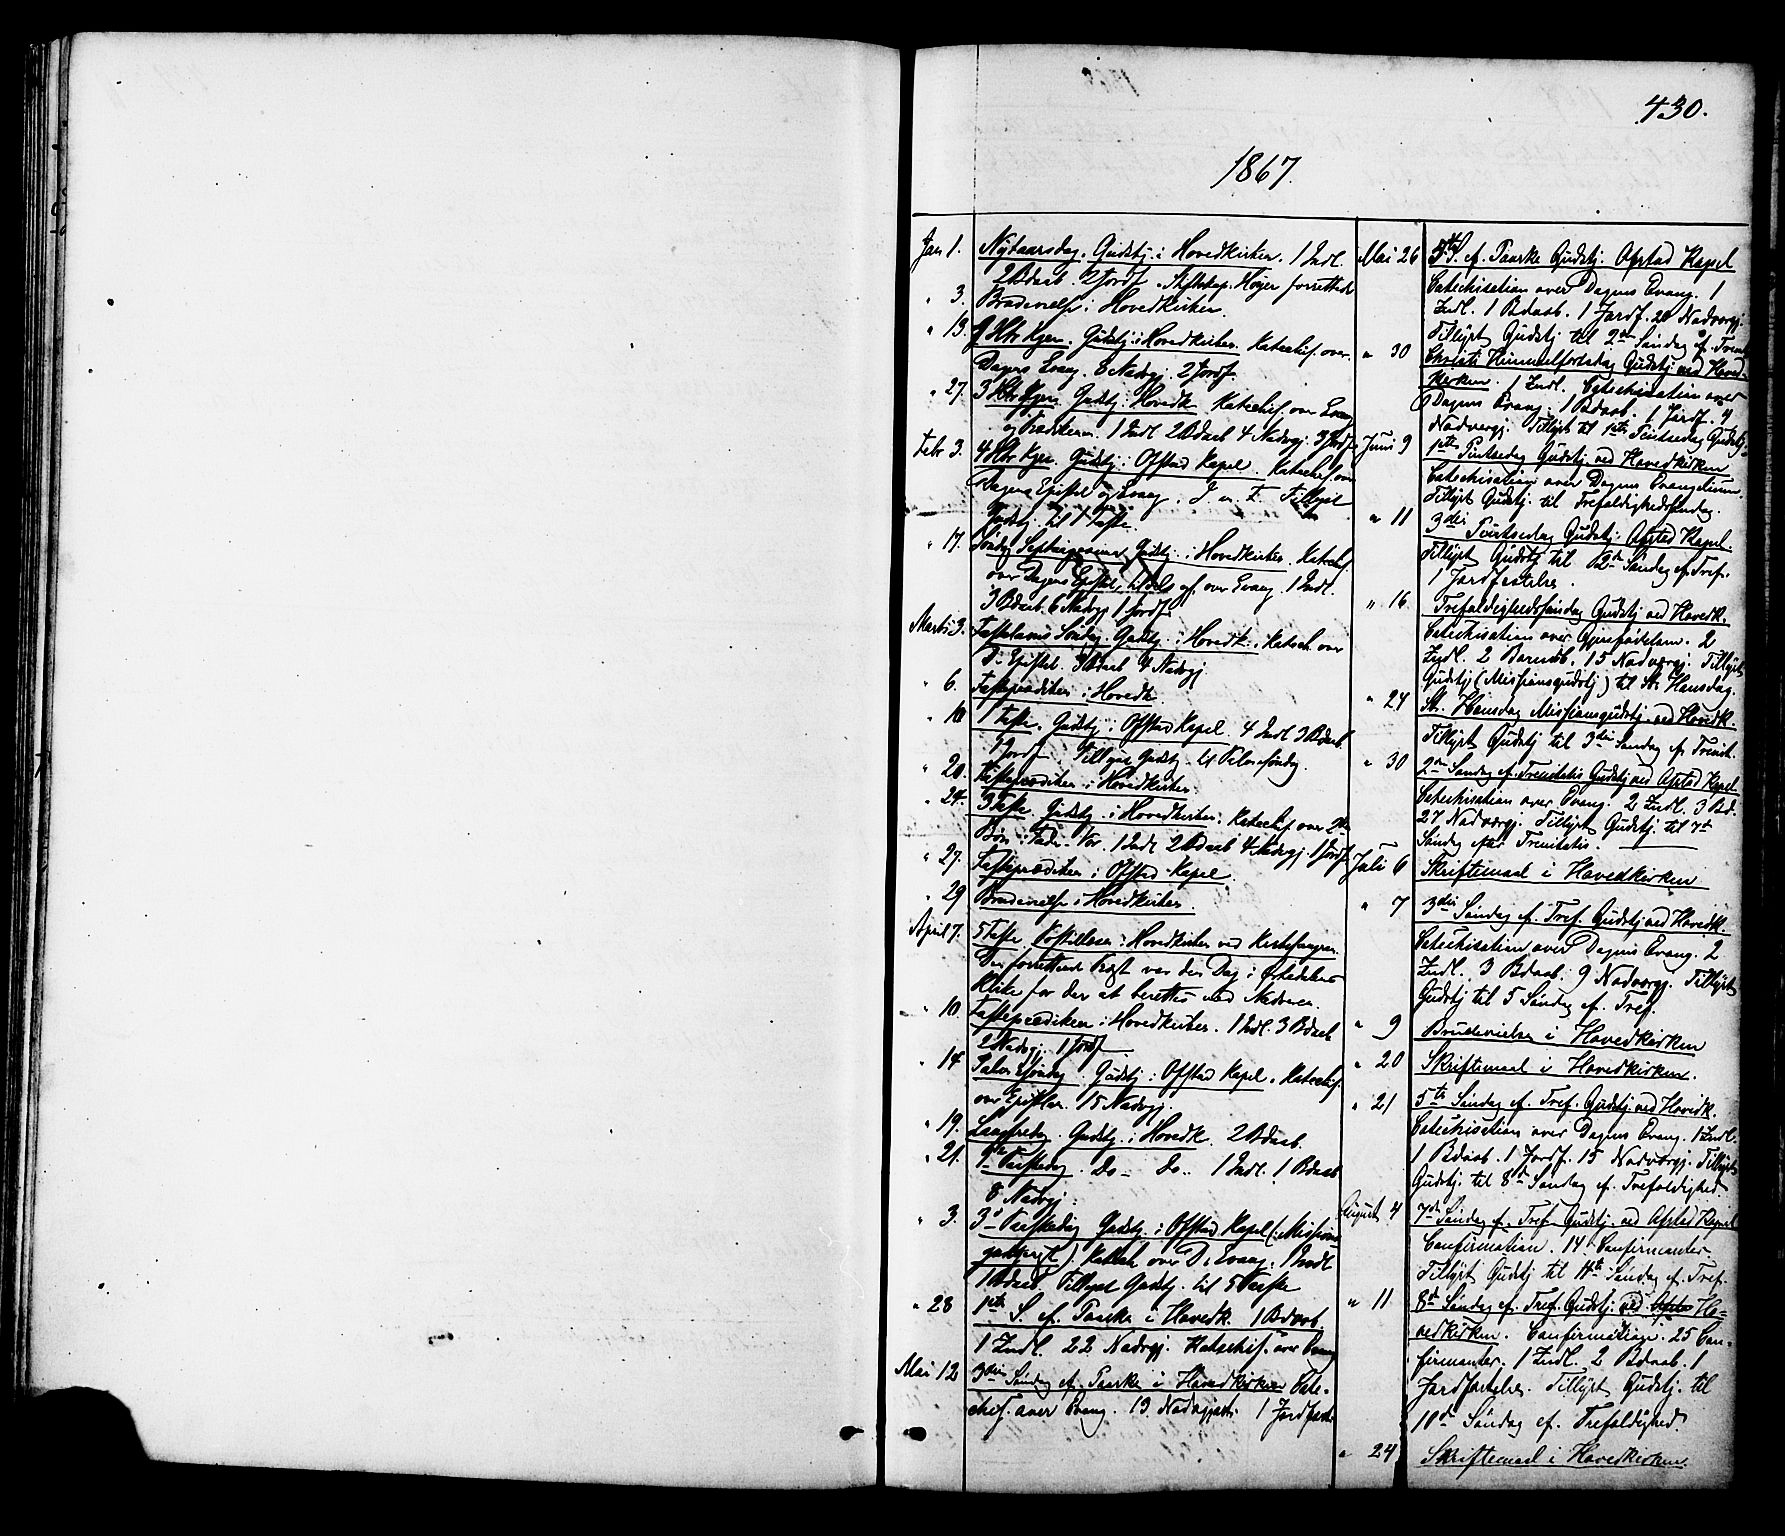 430.
1867.
Jan 1. Nytaarsdag. Gudstj. i Hovedkirken. 1 Indl.
2 Bdaab. 2 Jordf. Stiftskap. Høyer forrettede
" 3. Brudevielse i Hovedkirken.
" 13. 1 S. e. H. 3 Kgr. Gudstj. i Hovedkirken. Katechis. over
Dagens Evang. 8 Nadvgj. 2 Jordf.
" 27. 3 S. e. H. 3 Kgr. Gudstj. i Hovedk. Katechis. over Evang
og 1 Indl 2 Bdaab 4 Nadvgj. 3 Jordf.
Febr 3. 4 Htr Kgre. Gudstj. i Ofstad Kapel. Katechis. over
Dagens Epistel og Evang. Tillyst
Gudstj. til 1 Faste.
" 17. Søndag Septuagesima Gudstj. i Hovedkirken. Katechis.
over Dagens Epistel, tildels og over Evang 1 Indl.
3 Bdaab. 6 Nadvgj 1 Jordf.
Marts 3. Fastelavns Søndag. Gudstj. i Hovedk. Katech. over
D. Epistel. 3 Bdaab 4 Nadvgj.
" 6. Fasteprædiken i Hovedk.
" 10. 1 Faste. Gudstj. i Ofstad Kapel. 4 Indl 3 Bdaab.
1 Jordf. Tillyst Gudstj. til Palmesøndag.
" 20. Fasteprædiken i Hovedkirken.
" 24. 3 Faste. Gudstj. i Hovedkirken. Katechis. over 2den
Bøn i Fader-Vor. 1 Indl 2 Bdaab 4 Nadvgj. 1 Jordf.
" 27. Fasteprædiken i Ofstad-Kapel.
" 29 Brudevielse i Hovedkirken.
April 7. 5 Faste. Postillæsn. i Hovedkirken ved Kirkesangeren
Den forrettende Præst var den Dag i Ørkedalens
Klike for der at berettes med Nadveren.
" 10. Fasteprædiken i Hovedkirken. 1 Indl. 3 Bdaab
2 Nadvgj. 1 Jordf.
" 14. Palmesøndag. Gudstj. i Ofstad Kapel. Katechis.
over Epistlen. 15 Nadvgj.
" 19. Langfredag. Gudstj. i Hovedk. 2 Bdaab.
" 21. 1ste Paaskedag. Do- Do.. 1 Indl. 1 Bdaab
8 Nadvgj.
" 3. 3die Paaskedag Gudstj. i Ofstad Kapel (: Missions
gudstjenste). Katech. over D. Evang. 1 Indl
1 Bdaab. Tillyst Gudstj. til 5 Paaske
" 28 1ste S. ef. Paaske i Hovedk. 1 Bdaab
1 Indl. 22 Nadvgj. Katechis. over Evang
Mai 12 3die Søndag ef. Paaske i Hovedkirken Cate-
chis. over Evang. 13 Nadvgjæster 1 Jordfæst.
Mai 26 5te S. ef. Paaske Gudstj. Ofstad Kapel
Catechisation over Dagens Evang. 1
Indl. 1 Bdaab. 1 Jordf. 20 Nadvergj.
Tillyst Gudstj til 2den Søndag ef. Trinit
" 30 Christi Himmelfartsdag Gudstj. ved Hoved-
kirken. 1 Indl. Catechisation over
Dagens Evang. 1 Bdaab. 1 Jordf. 4
Nadvergj. Tillyst til 1ste Pintsedag Gudstj.
Juni 9 1ste Pintsedag Gudstj. ved Hovedkirken
Catechisation over Dagens Evangelium.
Tillyst Gudstj. til Trefoldighedssøndag.
" 11 3die Pintsedag Gudstj. Ofstad Kapel.
Tillyst Gudstj til 2den Søndag ef. Tref.
1 Jordfæstelse.
" 16 Trefoldighedssøndag Gudstj ved Hovedk.
Catechisation over Gjenfødelsen. 2
Indl. 2 Barnedb. 15 Nadvergj. Tillyst
Gudstj (Missionsgudstj) til St. Hansdag.
" 24 St. Hansdag Missionsgudstj. ved Hovedk.
Tillyst Gudstj til 3die Søndag ef. Trinit.
" 30 2den Søndag ef. Trinitatis Gudstj ved Ofstad Kapel
Catechisation over Evang. 2 Indl. 3 Bd.
27 Nadvergj. Tillyst Gudstj. til 7de
Søndag efter Trinitatis.
Juli 6 Skriftemaal i Hovedkirken
" 7 3die Søndag ef. Tref. Gudstj ved Hovedk.
Catechisation over Dagens Evang. 2
Indl. 3 Bdaab. 9 Nadvergj. Tillyst
Gudstj til 5 Søndag ef. Tref.
" 9 Brudevielse i Hovedkirken
" 20 Skriftemaal i Hovedkirken.
" 21 5te Søndag ef. Tref. Gudstj ved Hovedk.
Catechisation over Dagens Evang. 1 Indl.
1 Bdaab. 1 Jordf. 15 Nadvergj. Tillyst
Gudstj. til 8de Søndag ef. Trefoldighed
August 4 7de Søndag ef. Tref Gudstj. ved Ofstad Kapel
Confirmation. 14 Confirmanter
Tillyst Gudstj til 11te Søndag ef. Tref.
" 11 8de Søndag ef. Tref. Gudstj. ved Ofstad Ho-
vedkirken. Confirmation. 25 Con-
firmanter. 1 Indl. 2 Bdaab. 1
Jordfæstelse. Tillyst Gudstj. til
10de Søndag ef. Trefoldighed.
" 24 Skriftemaal i Hovedkirken.